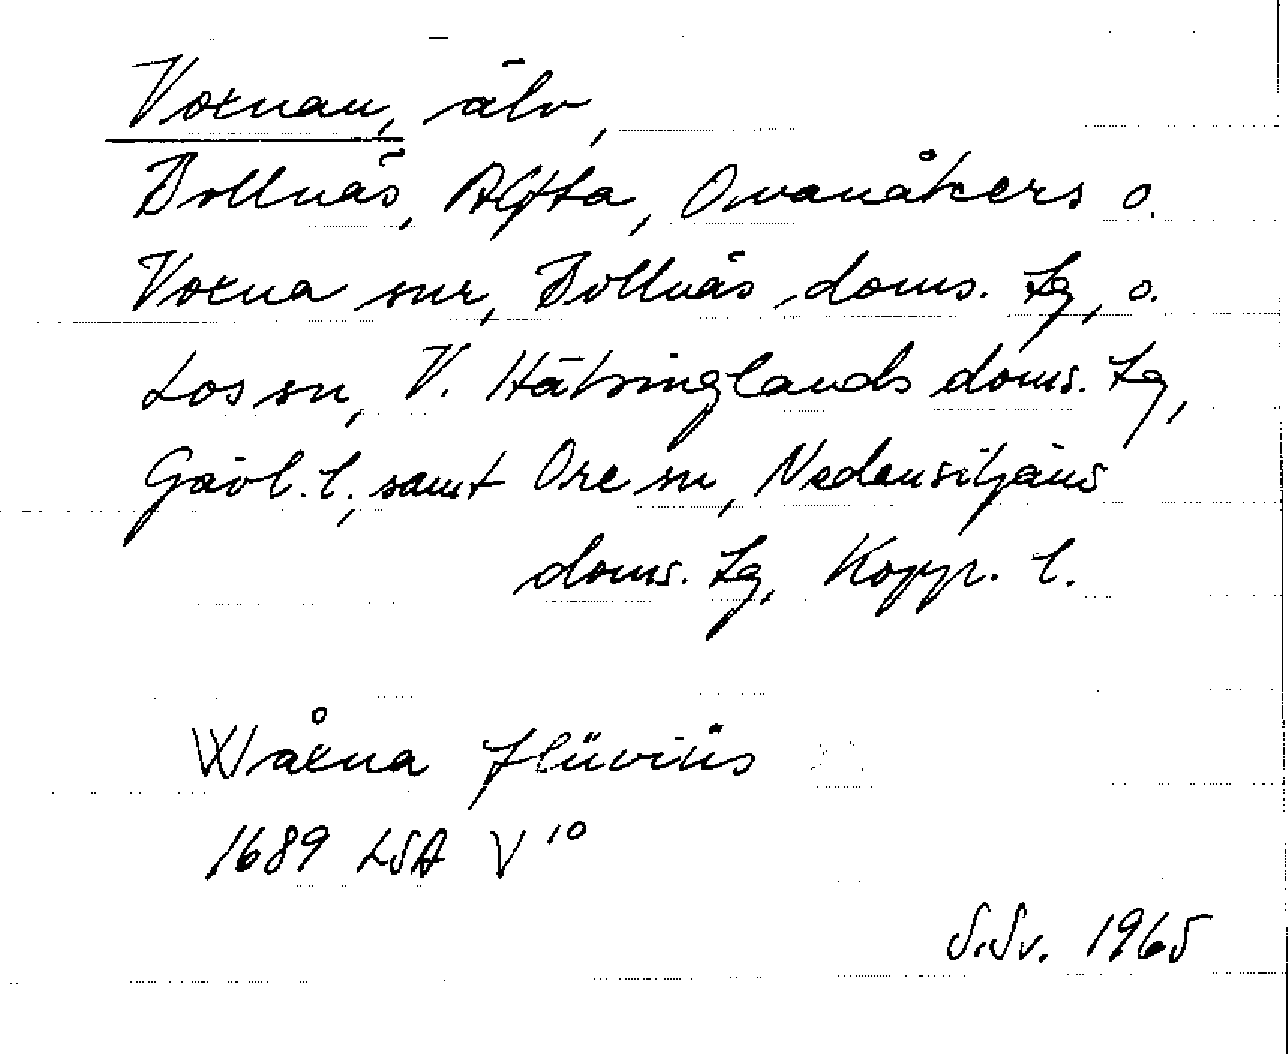 Voxnan, älv,
Bollnäs, Alfta, Ovanåkers o.
Voxna snr, Bollnäs doms. lg, o.
Los sn, V. Hälsinglands doms. lg,
Gävl. l., samt Ore sn, Nedansiljans
doms. lg, Kopp. l.
Wåxna flüviüs
1689 LSA V 10
S.Sv. 1965